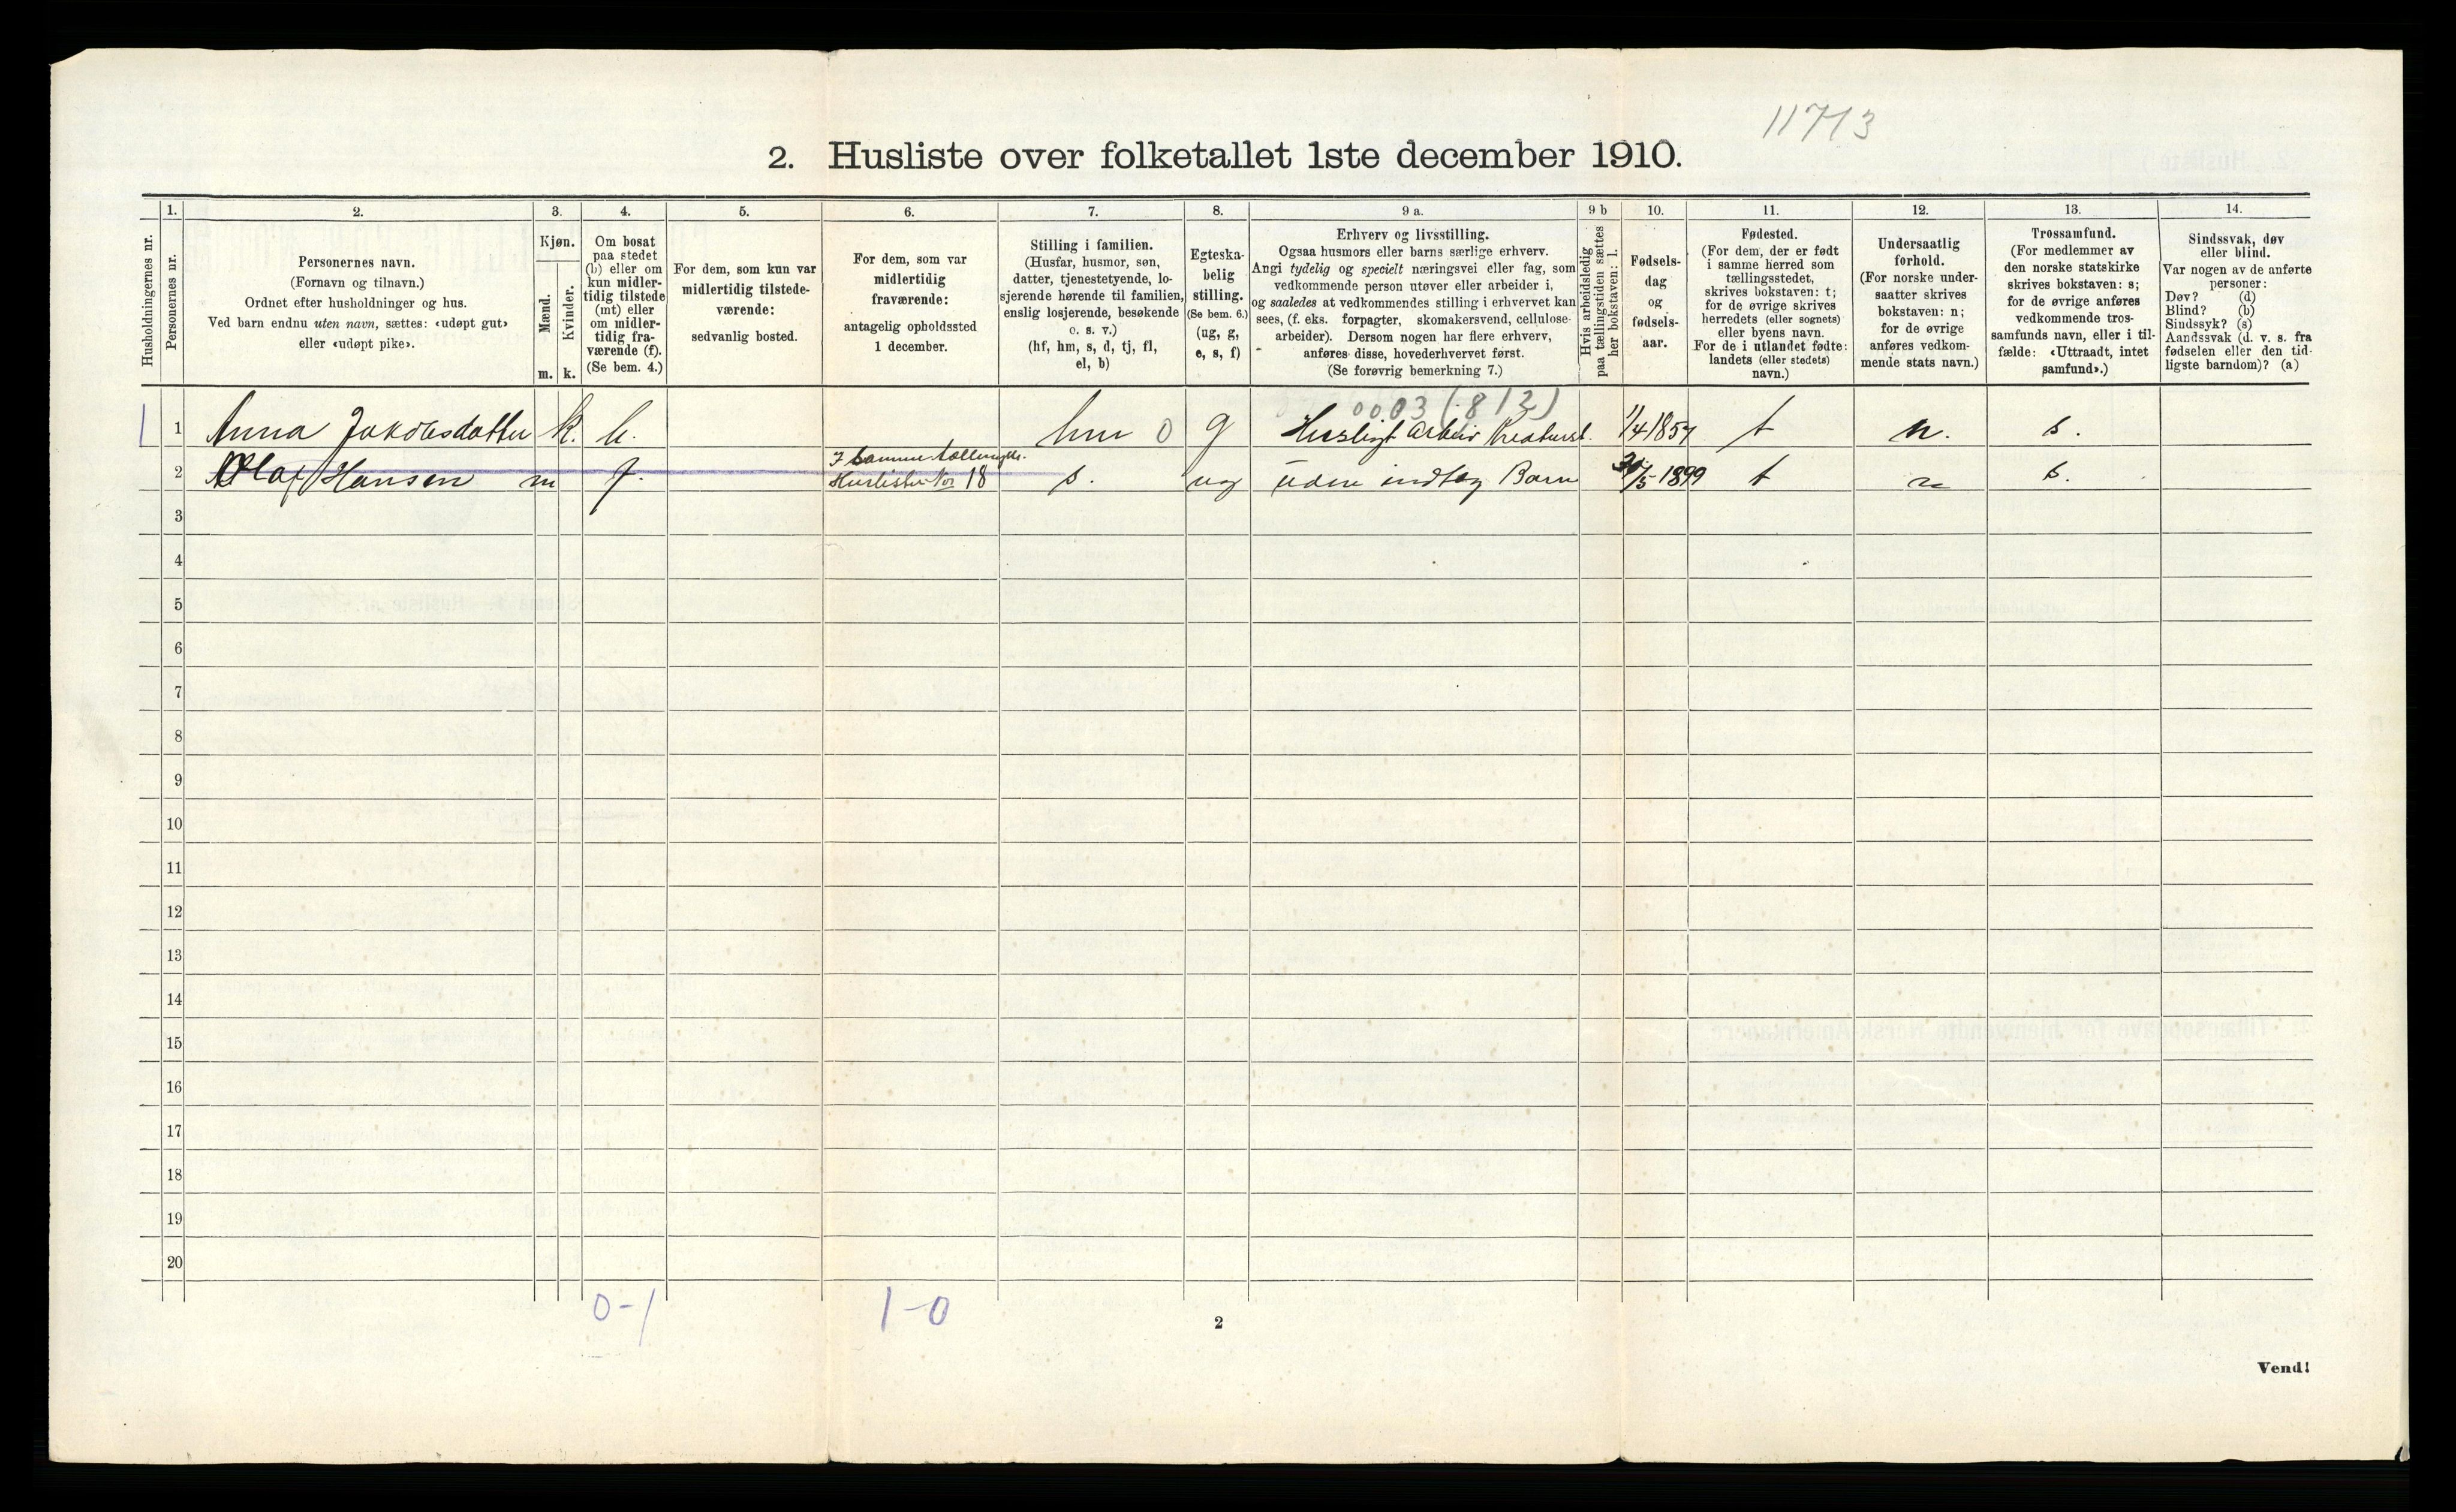 11713
2. Husliste over folketallet 1ste december 1910.
Husholdningernes nr.
1.
Personernes nr.
2.
Personernes navn.
(Fornavn og tilnavn.)
Ordnet efter husholdninger og hus.
Ved barn endnu uten navn, sættes: «udøpt gut»
eller «udøpt pike».
3.
Kjøn.
Mænd.
Kvinder.
m. k.
4.
Om bosat
paa stedet
(b) eller om
kun midler-
tidig tilstede
(mt) eller
om midler-
tidig fra-
værende (f).
(Se bem. 4.)
5.
For dem, som kun var
midlertidig tilstede-
værende:
sedvanlig bosted.
6.
For dem, som var
midlertidig
fraværende:
antagelig opholdssted
1 december.
7.
Stilling i familien.
(Husfar, husmor, søn,
datter, tjenestetyende, lo-
sjerende hørende til familien,
enslig losjerende, besøkende
o. s. v.)
(hf, hm, s, d, tj, fl,
el, b)
8.
Egteska-
belig
stilling.
(Se bem. 6.)
(ug, g,
e, s, f)
9 a.
Erhverv og livsstilling.
Ogsaa husmors eller barns særlige erhverv.
Angi tydelig og specielt næringsvei eller fag, som
vedkommende person utøver eller arbeider i,
og saaledes at vedkommendes stilling i erhvervet kan
sees, (f. eks. forpagter, skomakersvend, cellulose-
arbeider). Dersom nogen har flere erhverv,
anføres disse, hovederhvervet først.
(Se forøvrig bemerkning 7.)
9 b
Hvis arbeidsledig
paa tællingstiden sættes
her bokstaven: l.
10.
Fødsels-
dag
og
fødsels-
aar.
11.
Fødested.
(For dem, der er født
i samme herred som
tællingsstedet,
skrives bokstaven: t;
for de øvrige skrives
herredets (eller sognets)
eller byens navn.
For de i utlandet fødte:
landets (eller stedets)
navn.)
12.
Undersaatlig
forhold.
(For norske under-
saatter skrives
bokstaven: n;
for de øvrige
anføres vedkom-
mende stats navn.)
13.
Trossamfund.
(For medlemmer av
den norske statskirke
skrives bokstaven: s;
for de øvrige anføres
vedkommende tros-
samfunds navn, eller i til-
fælde: «Uttraadt, intet
samfund».)
14.
Sindssvak, døv
eller blind.
Var nogen av de anførte
personer:
Døv? (d)
Blind? (b)
Sindssyk? (s)
Aandssvak (d. v. s. fra
fødselen eller den tid-
ligste barndom)? (a)
0003 (812)
1 Anna Jakobsdatter k. b. hm 0 g Husligt Arbeid Kreaturst. 1/4 1857 t n. s.
2 Olaf Hansen m f. I samme Tællingskr. Huslister No 18 s. ug uden indtæg Barn /5 1899 t n s.
3
4
5
6
7
8
9
10
11
12
13
14
15
16
17
18
19
20
0-1
1-0
2
Vend!